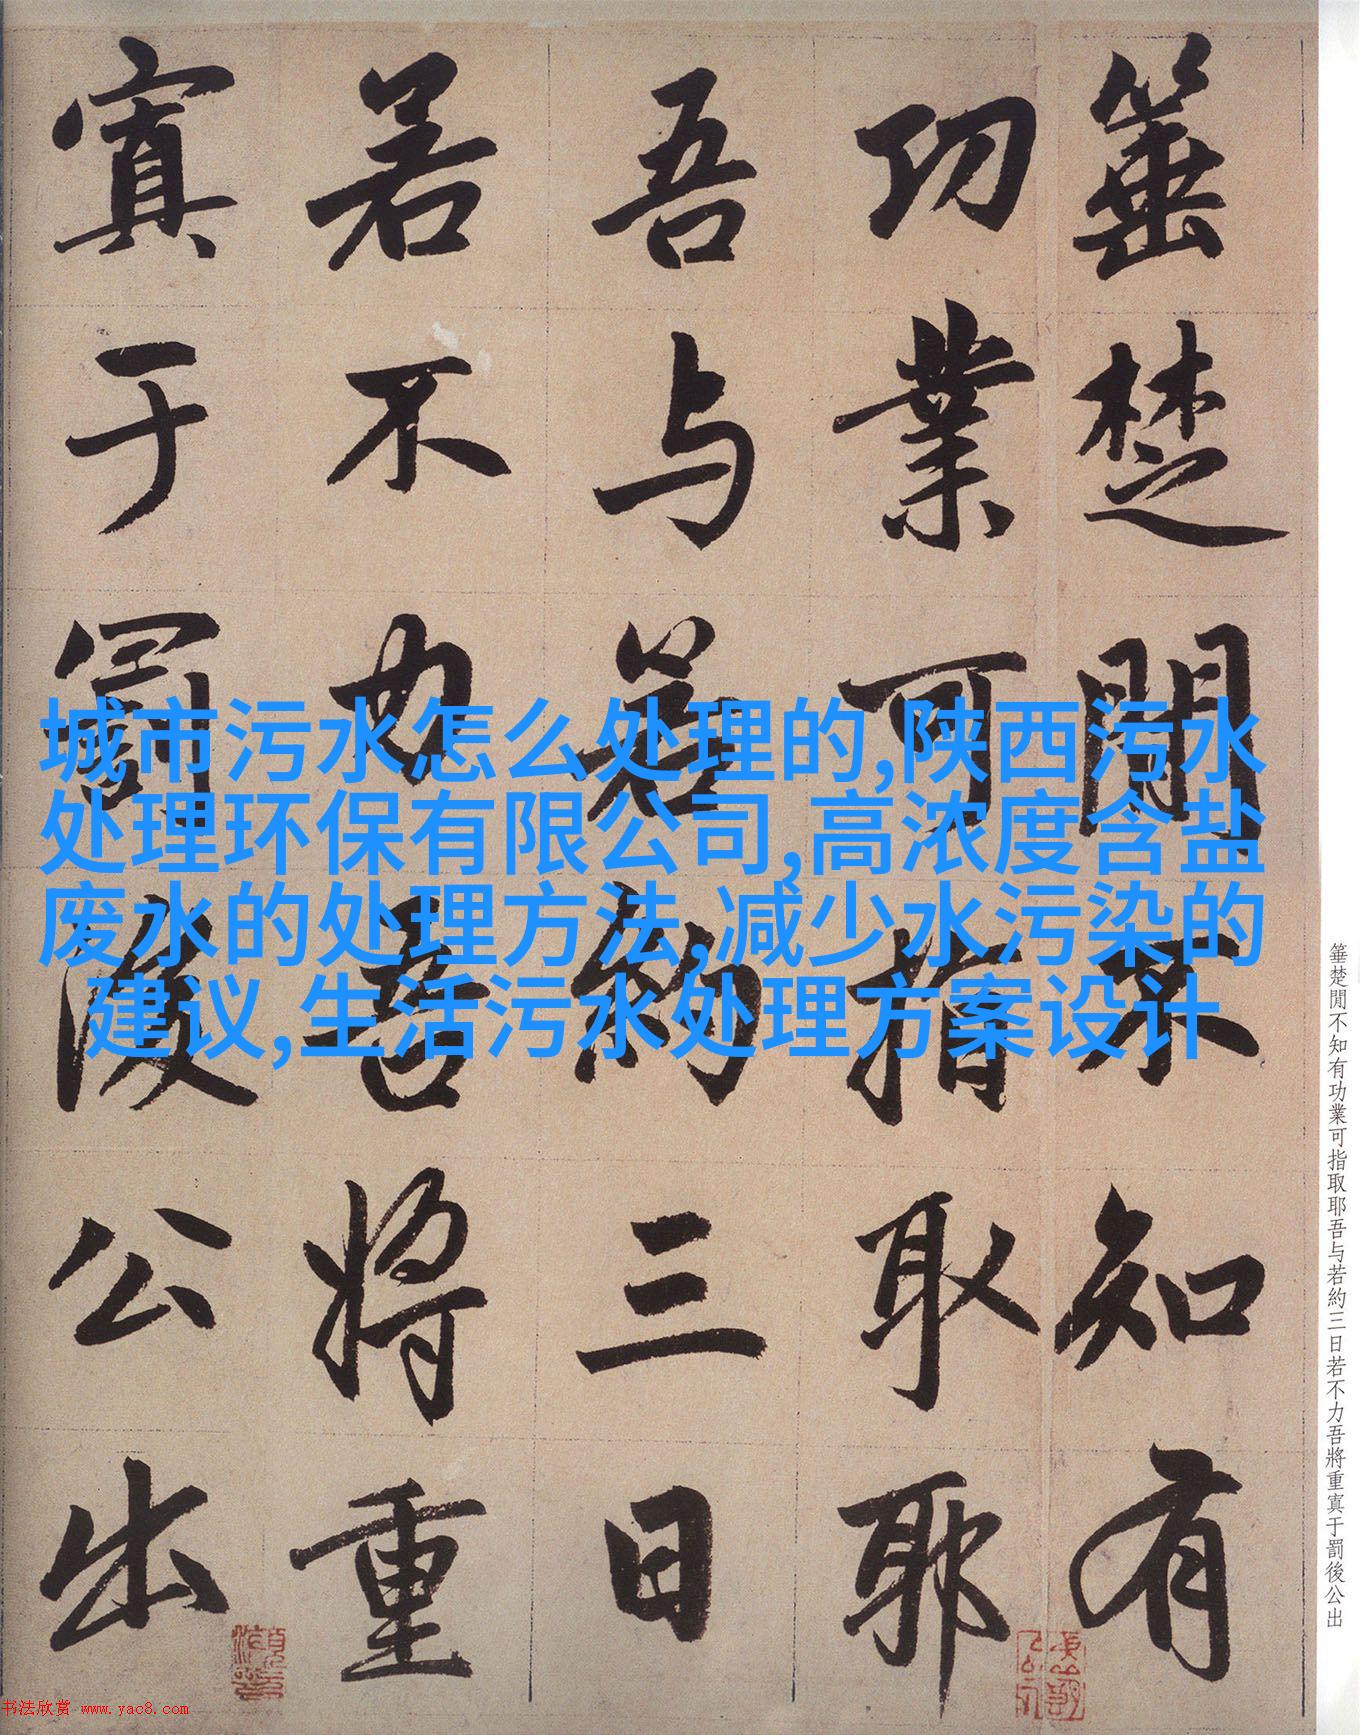 箠楚閒不知有
功業可指取耶
吾与若約三日
若不力吾將重
寘于罰後公出
城市污水怎么处理的,陕西污水
处理环保有限公司,高浓度含盐
废水的处理方法,减少水污染的
建议,生活污水处理方案设计
箠楚閒不知有功業可指取耶吾与若約三日若不力吾將重寘于罰後公出
书法欣赏 www.yac8.com